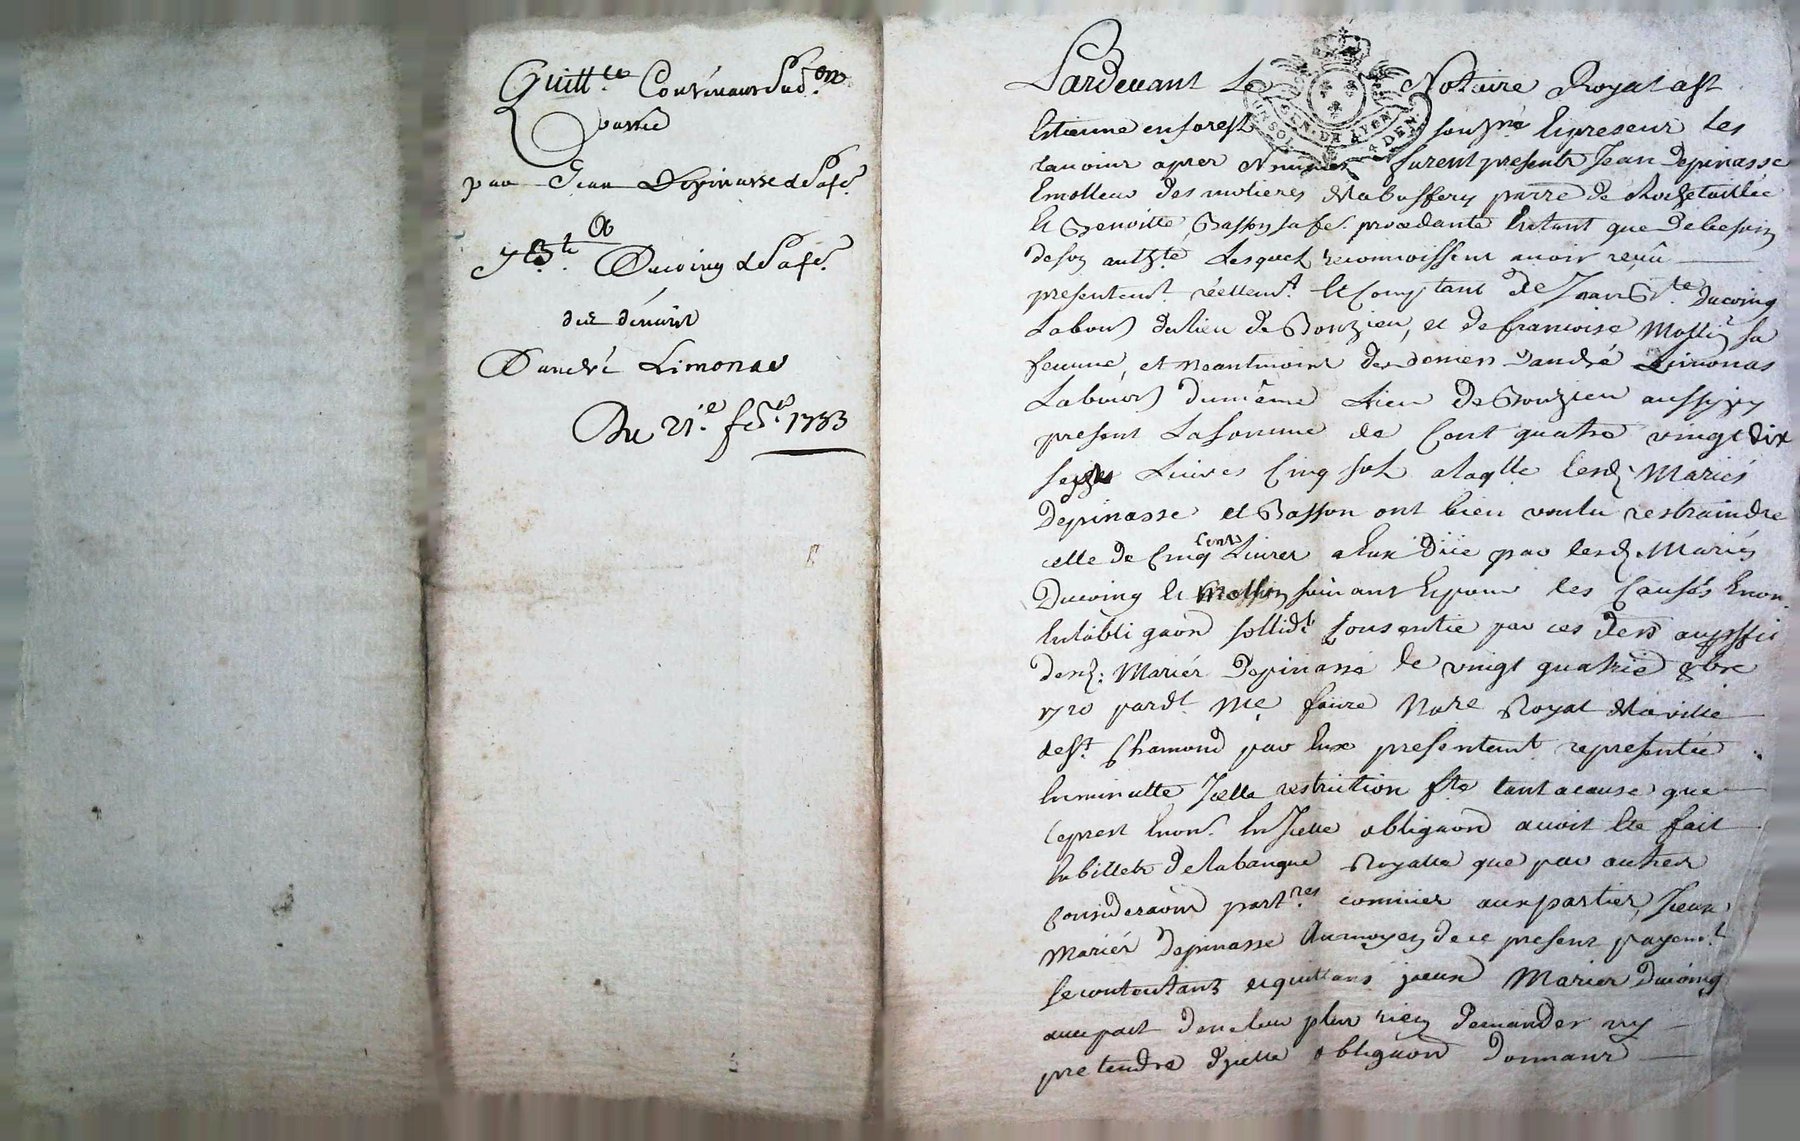 Quitt.ce Contenant Sub.on
passée
par Jean Depinasse & Sa fe.
A
J B.te Ducoing & Sa fe.
des deniers
D'andré Limonas
Du 21.e fe.er 1723
Pardevant Le Notaire Royal a St
Estienne en forest soussné Expreseur Les
tesmoins apres nommes furent presents Jean Depinasse
Emolleur des molieres de la bussery parre de Rochetaillée
Et Benoitte Basson sa fe. procedante Entant que de besoin
de son auth.te Lesquels reconnoissent avoir reçû
presentem.t réellem.t Et Comptant de Jean B.te Ducoing
Labour) du lieu de Bonzieu, et de francoise Mossin sa
femme, et neantmoins des deniers d'andré Limonas
Labour) du même Lieu de Bonzieu aussy icy
present La Somme de Cent quatre vingt dix
sept Livres Cinq sols a laq.lle lesd. Mariés
Depinasse et Basson ont bien voulu restraindre
celle de Cinq Cents Livres a Eux düe par lesd. Mariés
Ducoing et Mossin suivant Et pour les Causes Enon.
En lobligaon sollid.e Consentie par ces dern au proffit
desd: Mariés Depinasse le vingt quatrie 9bre
1720 pard.t Me faure No.re Royal de la ville
de St. Chamond par Eux presentemt representée
En minutte Icelle restriction f.te tant a cause que
le prest Enon. En Icelle obligaon avoit Ete fait
En billets de la banque Royalle que par autres
Consideraons part.res connües aux parties, Iceux
Mariés Depinasse Au moyen de ce present payem.t
se contentans et quittans iceux Mariés Ducoing
avec pact d'en leur plus rien demander ny
pretendre d'icelle obligaon donnans